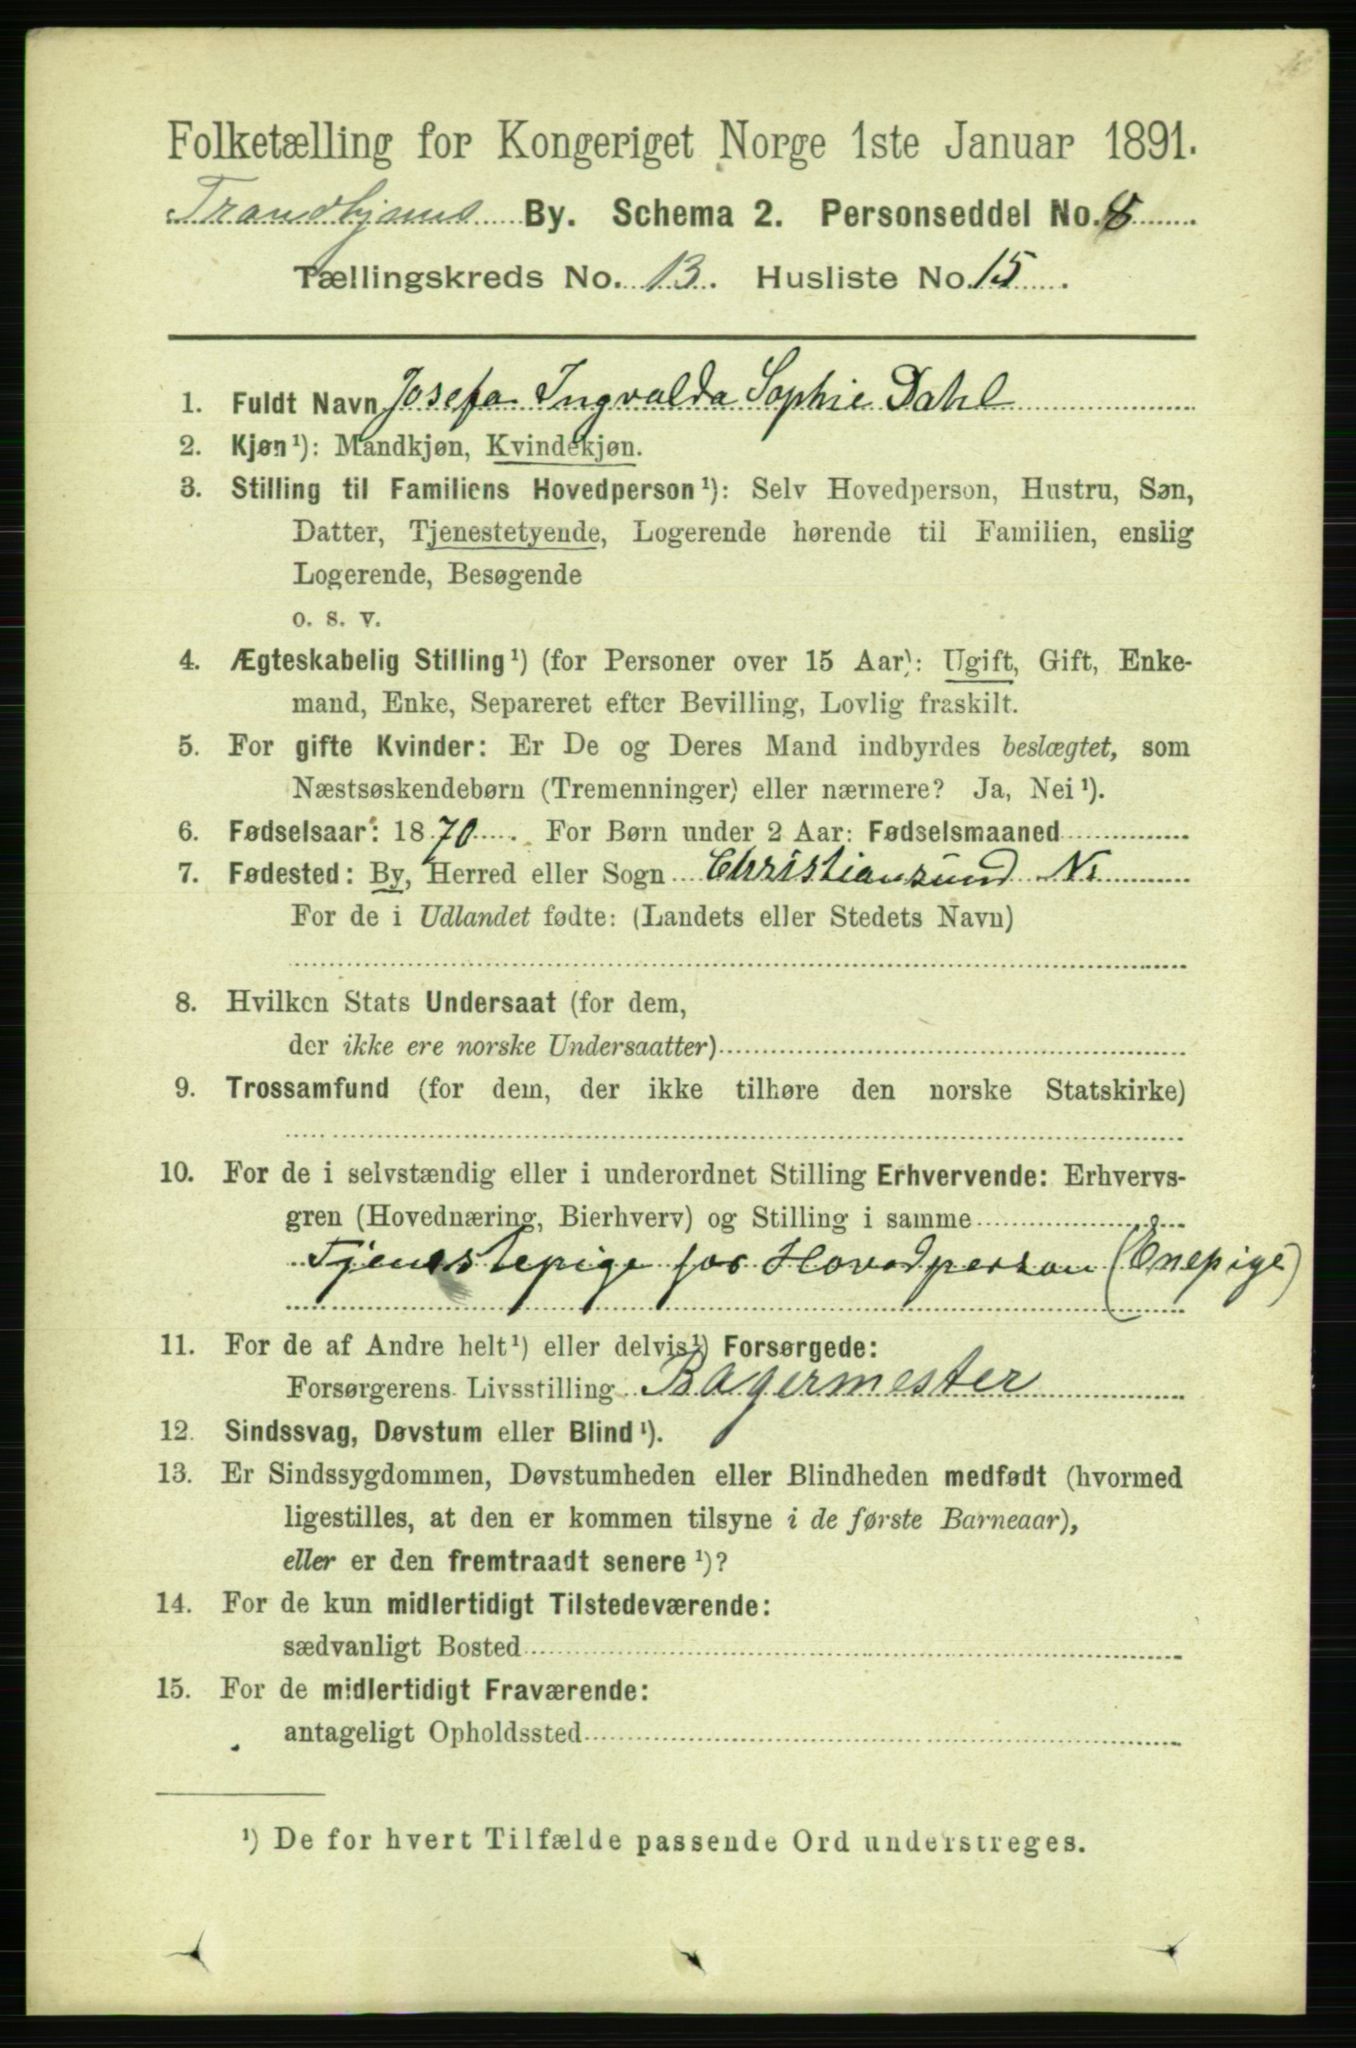 Folketælling for Kongeriget Norge 1ste Januar 1891.
Trondhjems By. Schema 2. Personseddel No. 8
Tællingskreds No. 13. Husliste No. 15.
1. Fuldt Navn Josefa Ingvalda Sophie Dahl
2. Kjøn¹): Mandkjøn, Kvindekjøn.
3. Stilling til Familiens Hovedperson¹): Selv Hovedperson, Hustru, Søn,
Datter, Tjenestetyende, Logerende hørende til Familien, enslig
Logerende, Besøgende
o. s. v.
4. Ægteskabelig Stilling¹) (for Personer over 15 Aar): Ugift, Gift, Enke-
mand, Enke, Separeret efter Bevilling, Lovlig fraskilt.
5. For gifte Kvinder: Er De og Deres Mand indbyrdes beslægtet, som
Næstsøskendebørn (Tremenninger) eller nærmere? Ja, Nei¹).
6. Fødselsaar: 1870. For Børn under 2 Aar: Fødselsmaaned
7. Fødested: By, Herred eller Sogn Christiansund N.
For de i Udlandet fødte: (Landets eller Stedets Navn)
8. Hvilken Stats Undersaat (for dem,
der ikke ere norske Undersaatter)
9. Trossamfund (for dem, der ikke tilhøre den norske Statskirke)
10. For de i selvstændig eller i underordnet Stilling Erhvervende: Erhvervs-
gren (Hovednæring, Bierhverv) og Stilling i samme
Tjenestepige for Hovedperson (Enepige)
11. For de af Andre helt¹) eller delvis¹) Forsørgede:
Forsørgerens Livsstilling Bagermester
12. Sindssvag, Døvstum eller Blind¹).
13. Er Sindssygdommen, Døvstumheden eller Blindheden medfødt (hvormed
ligestilles, at den er kommen tilsyne i de første Barneaar),
eller er den fremtraadt senere¹)?
14. For de kun midlertidigt Tilstedeværende:
sædvanligt Bosted
15. For de midlertidigt Fraværende:
antageligt Opholdssted
¹) De for hvert Tilfælde passende Ord understreges.